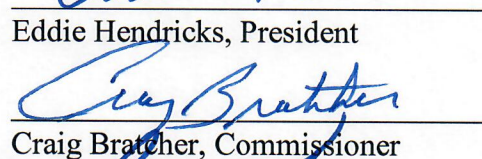 Eddie Hendricks, President
Craig Bratcher
Craig Bratcher, Commissioner